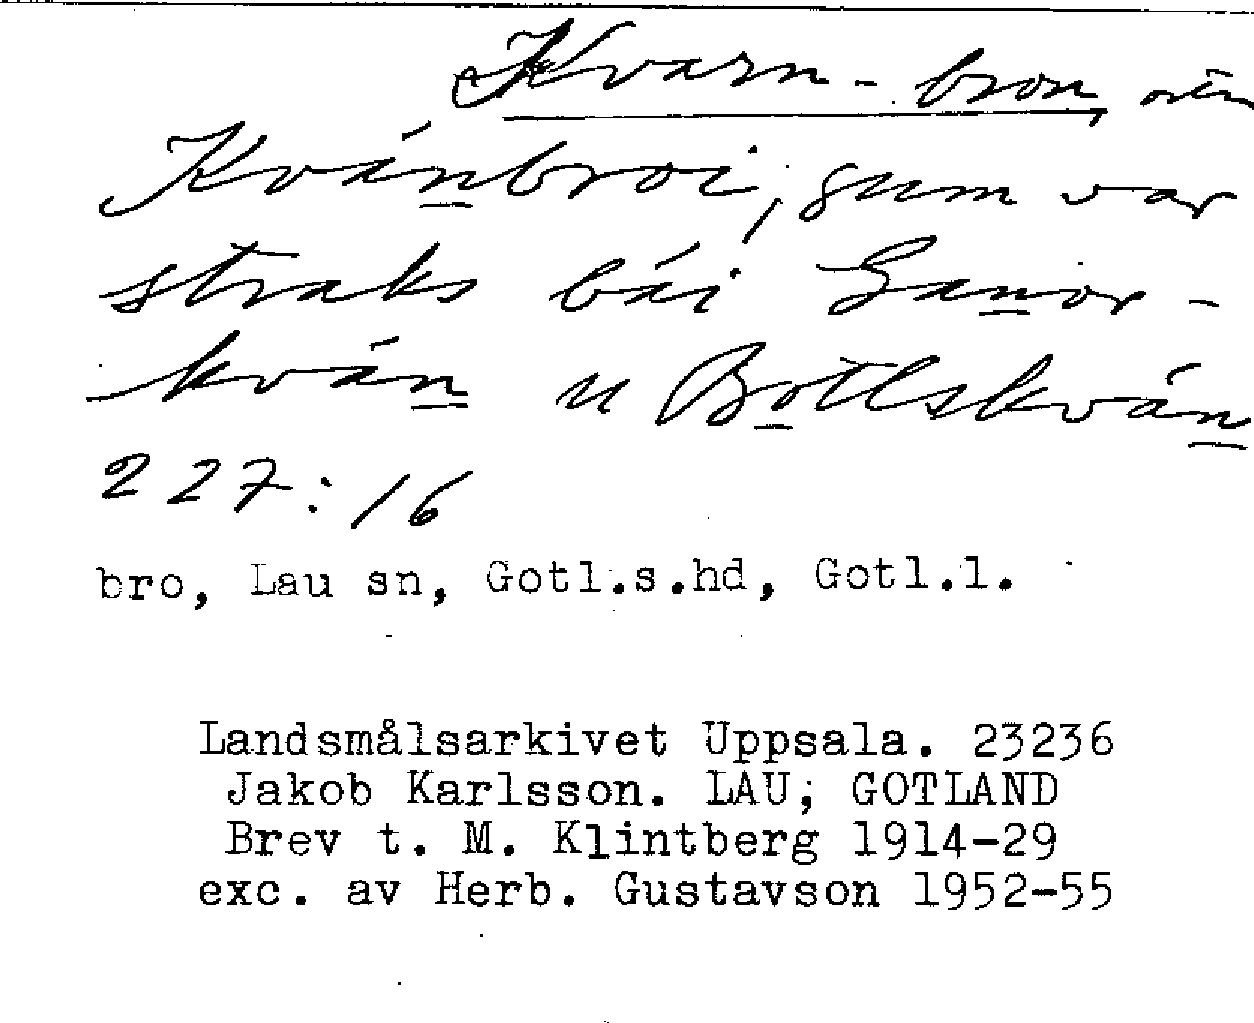 Kvarn-bron,
Kvánbroi, sum var
straks bái Ganor-
kván u Botlskván
227:16
bro, Lau sn, Gotl.s.hd, Gotl.l.
Landsmålsarkivet Uppsala. 23236
Jakob Karlsson. LAU; GOTLAND
Brev t. M. Klintberg 1914-29
exc. av Herb. Gustavson 1952-55